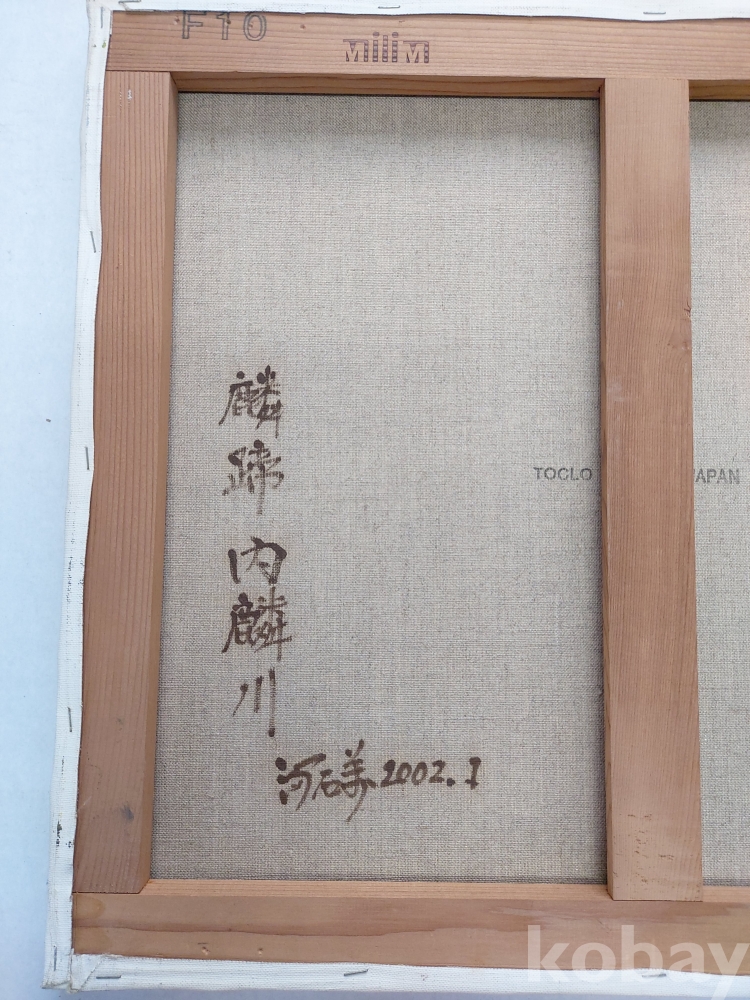 F10
MiliM
麟蹄内麟川
河石美 2002.1
TOCLO
JAPAN
kobay